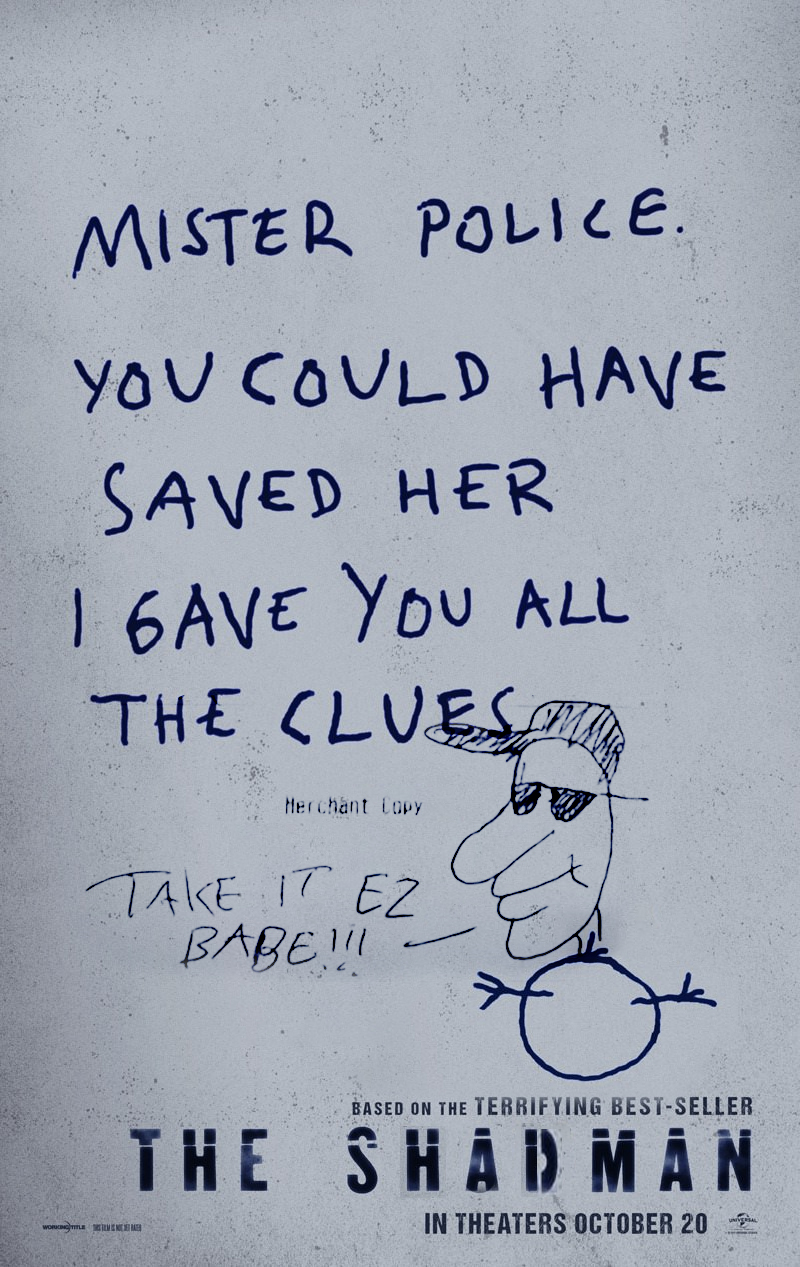 MISTER POLICE.
YOU COULD HAVE
SAVED HER
I GAVE YOU ALL
THE CLUES
Merchant Copy
TAKE IT EZ
BABE!!!
BASED ON THE TERRIFYING BEST-SELLER
THE SHADMAN
IN THEATERS OCTOBER 20
WORKING TITLE THIS FILM IS NOT YET RATED UNIVERSAL